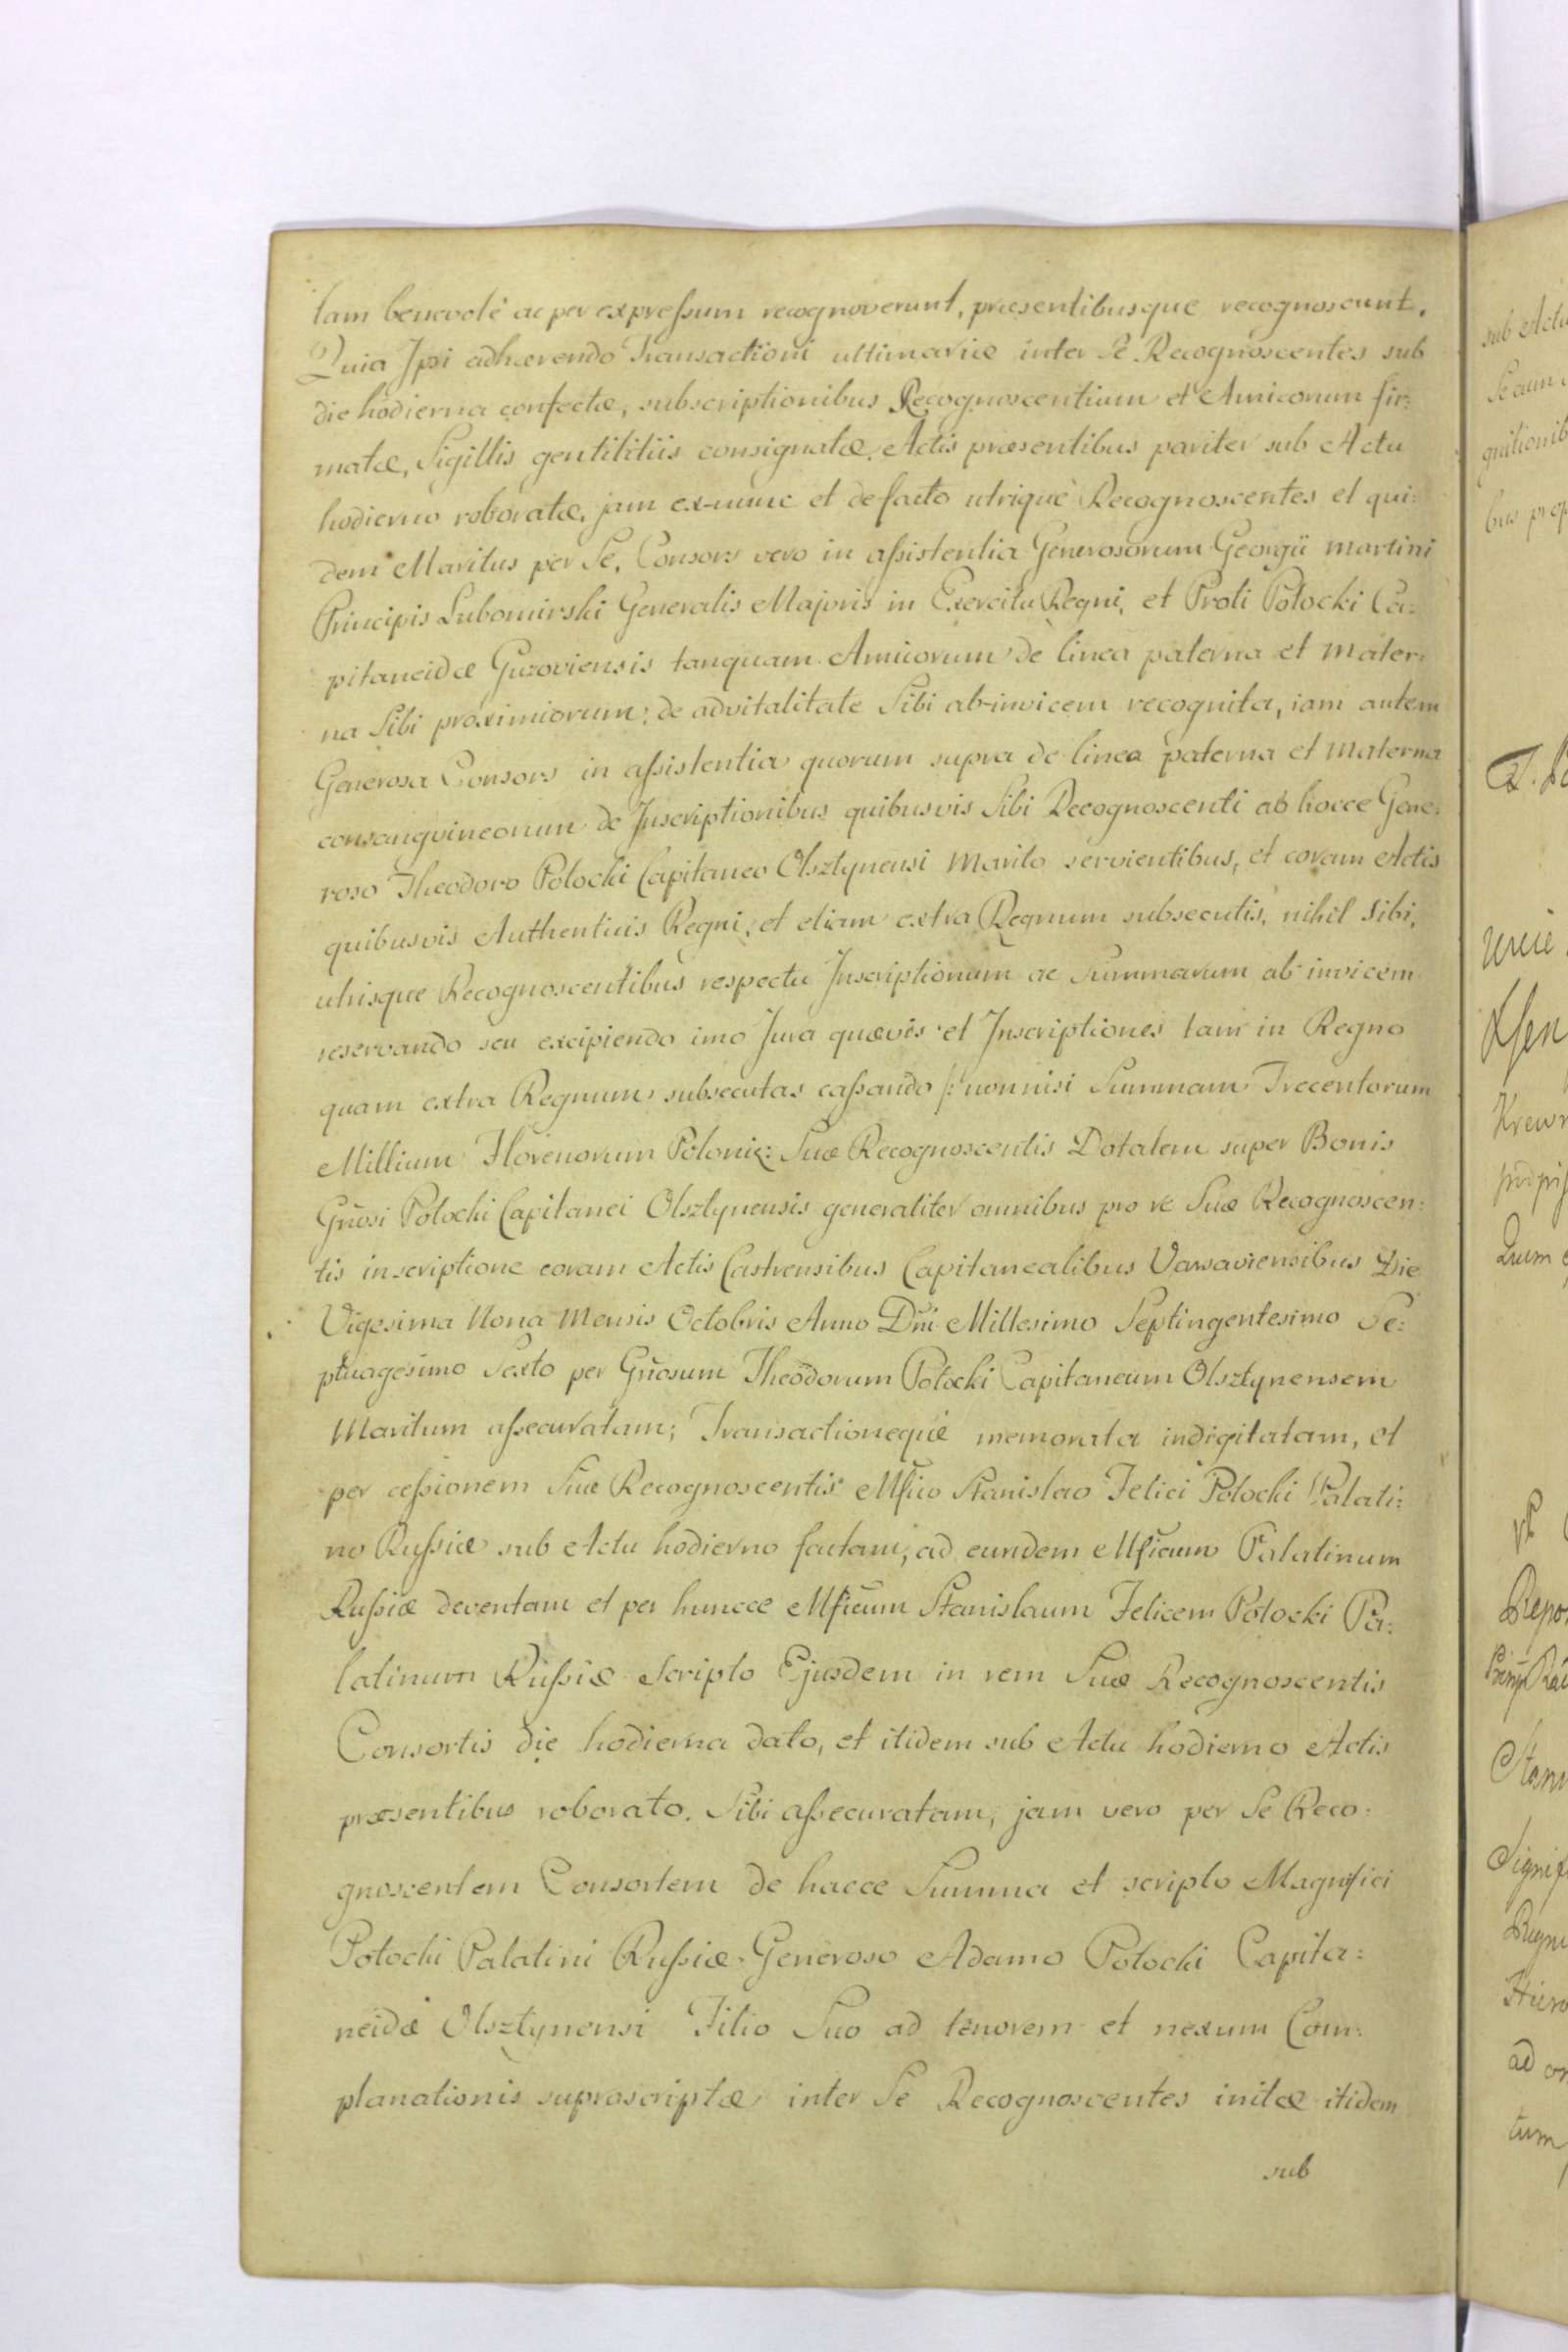 lam benevolè ac per expreſsum recognoverunt, præsentibusque recognoscunt.
Quia Ipsi adhærendo Transactioni ultimariæ inter Se Recognoscentes sub
die hodierna confectæ, subscriptionibus Recognoscentium et Amicorum fir:
matæ, Sigillis gentilitiis consignatæ, Actis præsentibus pariter sub Actu
hodierno roboratæ, jam ex-nunc et de facto utrique Recognoscentes et qui:
dem Maritus per Se, Consors vero in aſsistentia Generosorum Georgii Martini
Principis Lubomirski Generalis Majoris in Exercitu Regni, et Proti Potocki Ca:
pitaneidæ Guzoviensis tanquam Amicorum de linea paterna et mater:
na Sibi proximiorum; de advitalitate Sibi ab-invicem recognita, iam autem
Generosa Consors in aſsistentia quorum supra de linea paterna et materna
consangvineorum de Inscriptionibus quibusvis Sibi Recognoscenti ab hocce Gene:
roso Theodoro Potocki Capitaneo Olsztynensi Marito servientibus, et coram Actis
quibusvis Authenticis Regni, et etiam extra Regnum subsecutis, nihil Sibi,
utrisque Recognoscentibus respectu Inscriptionum ac Summarum ab-invicem
reservando seu excipiendo imo Jura quævis et Inscriptiones tam in Regno
quam extra Regnum subsecutas caſsando /: nonnisi Summam Trecentorum
Millium Florenorum Poloniz: Suæ Recognoscentis Dotalem super Bonis
Gñosi Potocki Capitanei Olsztynensis generaliter omnibus pro re Suæ Recognoscen:
tis inscriptione coram Actis Castrensibus Capitanealibus Varsaviensibus Die
Vigesima Nona Mensis Octobris Anno Dñi Millesimo Septingentesimo Se:
ptuagesimo Sexto per Gñosum Theodorum Potocki Capitaneum Olsztynensem
Maritum aſsecuratam; Transactioneque memorata indigitatam, et
per ceſsionem Suæ Recognoscentis Mfico Stanislao Felici Potocki Palati:
no Ruſsiæ sub Actu hodierno factam, ad eundem Mficum Palatinum
Ruſsiæ deventam et per huncce Mficum Stanislaum Felicem Potocki Pa:
latinum Ruſsiæ Scripto Ejusdem in rem Suæ Recognoscentis
Consortis die hodierna dato, et itidem sub Actu hodierno Actis
præsentibus roborato. Sibi aſsecuratam, jam vero per Se Reco:
gnoscentem Consortem de hacce Summa et scripto Magnifici
Potocki Palatini Ruſsiæ Generoso Adamo Potocki Capita:
neidæ Olsztynensi Filio Suo ad tenorem et nexum Com:
planationis suprascriptæ inter Se Recognoscentes initæ itidem
sub